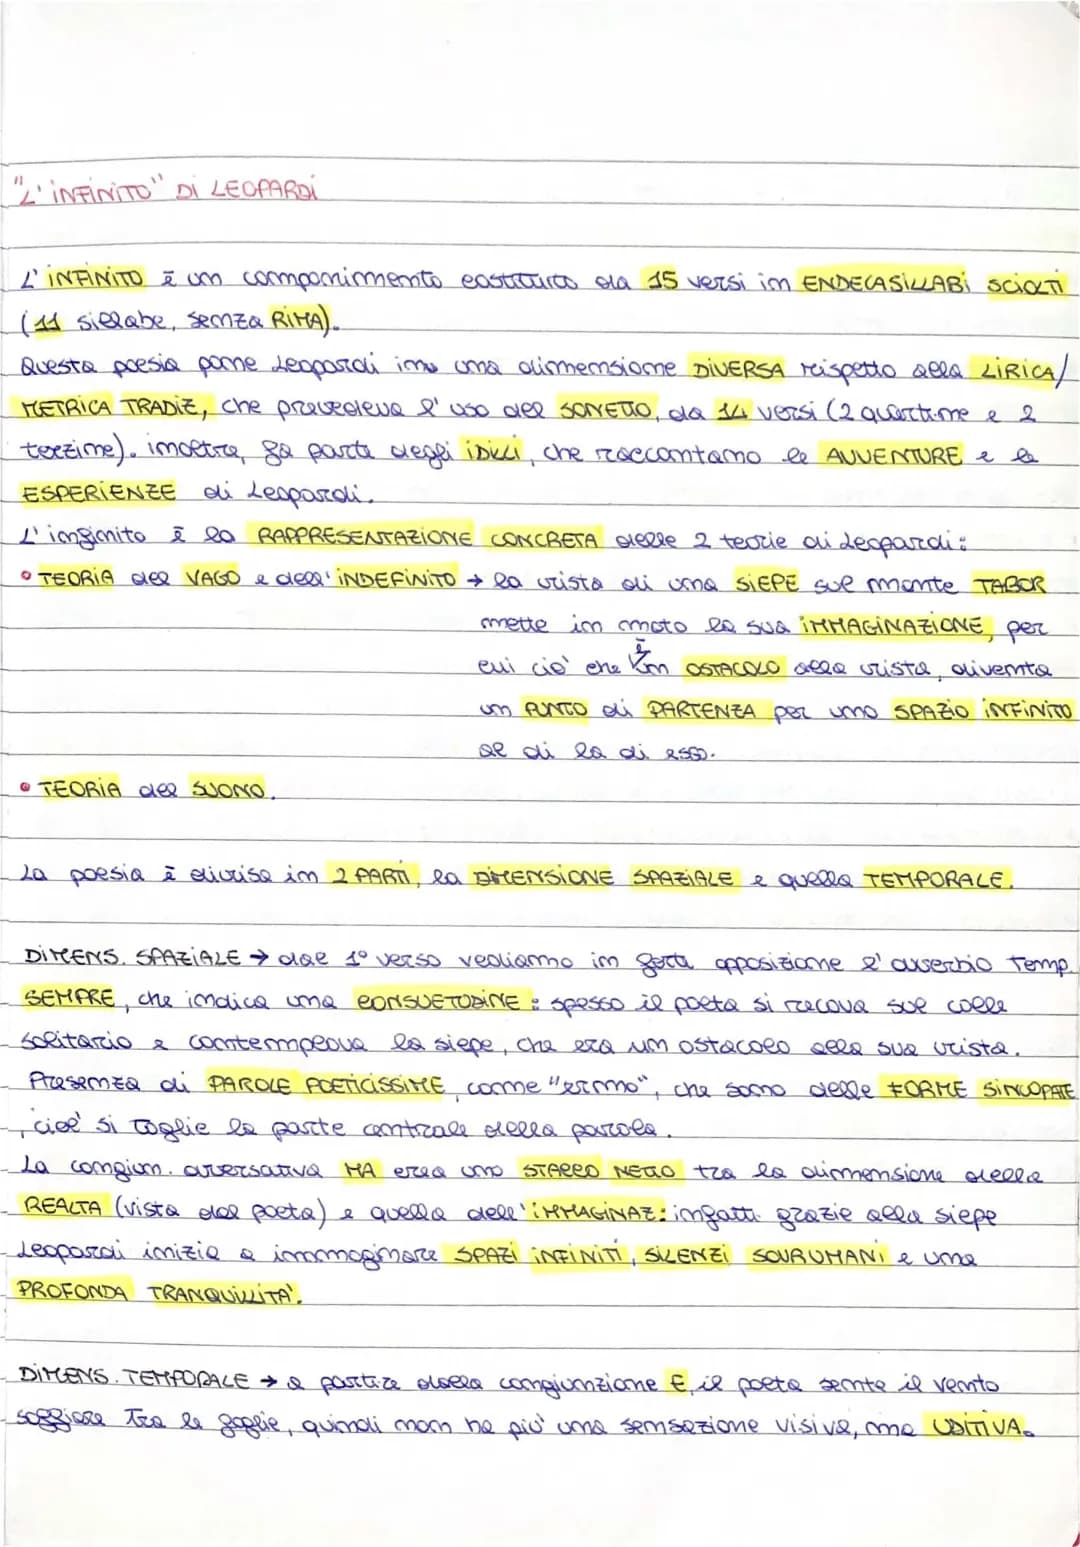 "L'INFINITO" DI LEOPARDI
L'INFINITO è un componimento costituito da 15 versi in ENDECASILLABI SCIOLTI
(11 sillabe, senza RIMA).
Questa poesia pone Leopardi in una dimensione DIVERSA rispetto alla LIRICA/
METRICA TRADIZ, che prevedeva l'uso del SONETTO, da 14 versi (2 quartine e 2
terzine). inoltre, fa parte degli iDILLI, che raccontano le AVVENTURE e le
ESPERIENZE di Leopardi.
L'infinito è la RAPPRESENTAZIONE CONCRETA delle 2 teorie di Leopardi:
• TEORIA del VAGO e dell'INDEFINITO → la vista di una SIEPE sul monte TABOR
mette in moto la sua IMMAGINAZIONE, per
cui ciò che è un OSTACOLO alla vista, diventa
un PUNTO di PARTENZA per uno SPAZIO INFINITO
al di la di esso.
• TEORIA del SUONO.
La poesia è divisa in 2 PARTI, la DIMENSIONE SPAZIALE e quella TEMPORALE.
DIMENS. SPAZIALE → dal 1° verso vediamo in forte opposizione l'avverbio temp.
SEMPRE, che indica una CONSUETUDINE: spesso il poeta si recava sul colle
solitario e contemplava la siepe, che era un ostacolo alla sua vista.
Presenza di PAROLE POETICISSIME, come "ermo", che sono delle FORME SINCOPATE
, cioè si toglie la parte centrale della parola.
La congiun. avversativa MA crea uno STACCO NETTO tra la dimensione della
REALTA (vista dal poeta) e quella dell'IMMAGINAZ: infatti grazie alla siepe
Leopardi inizia a immaginare SPAZI INFINITI, SILENZI SOVRUMANI e una
PROFONDA TRANQUILLITA'.
DIMENS. TEMPORALE → a partire dalla congiunzione E, il poeta sente il vento
soffiare tra le foglie, quindi non ha più una sensazione visiva, ma UDITIVA.